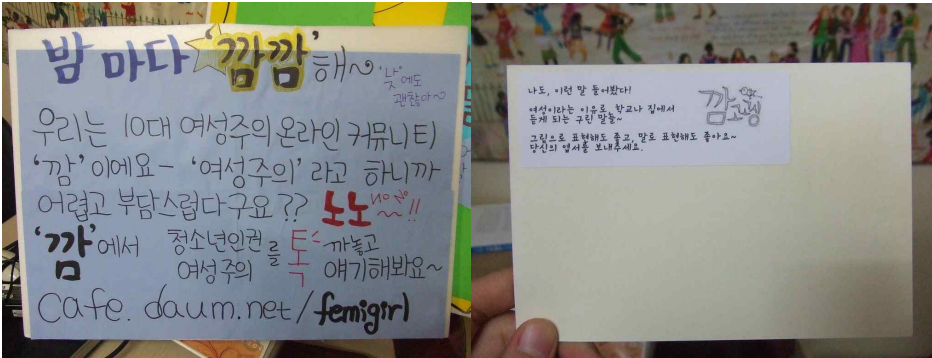 밤 마다 '깜깜' 해~
'낮'에도
괜찮아~
우리는 10대 여성주의 온라인 커뮤니티
'깜' 이에요- '여성주의' 라고 하니까
어렵고 부담스럽다구요?? 노노~~!!
NO NO
'깜'에서 청소년인권 여성주의 를 톡 까놓고 얘기해봐요~
cafe.daum.net/femigirl
나도, 이런 말 들어봤다!
여성이라는 이유로, 학교나 집에서
듣게 되는 구린 말들~
그림으로 표현해도 좋고, 말로 표현해도 좋아요~
당신의 엽서를 보내주세요.